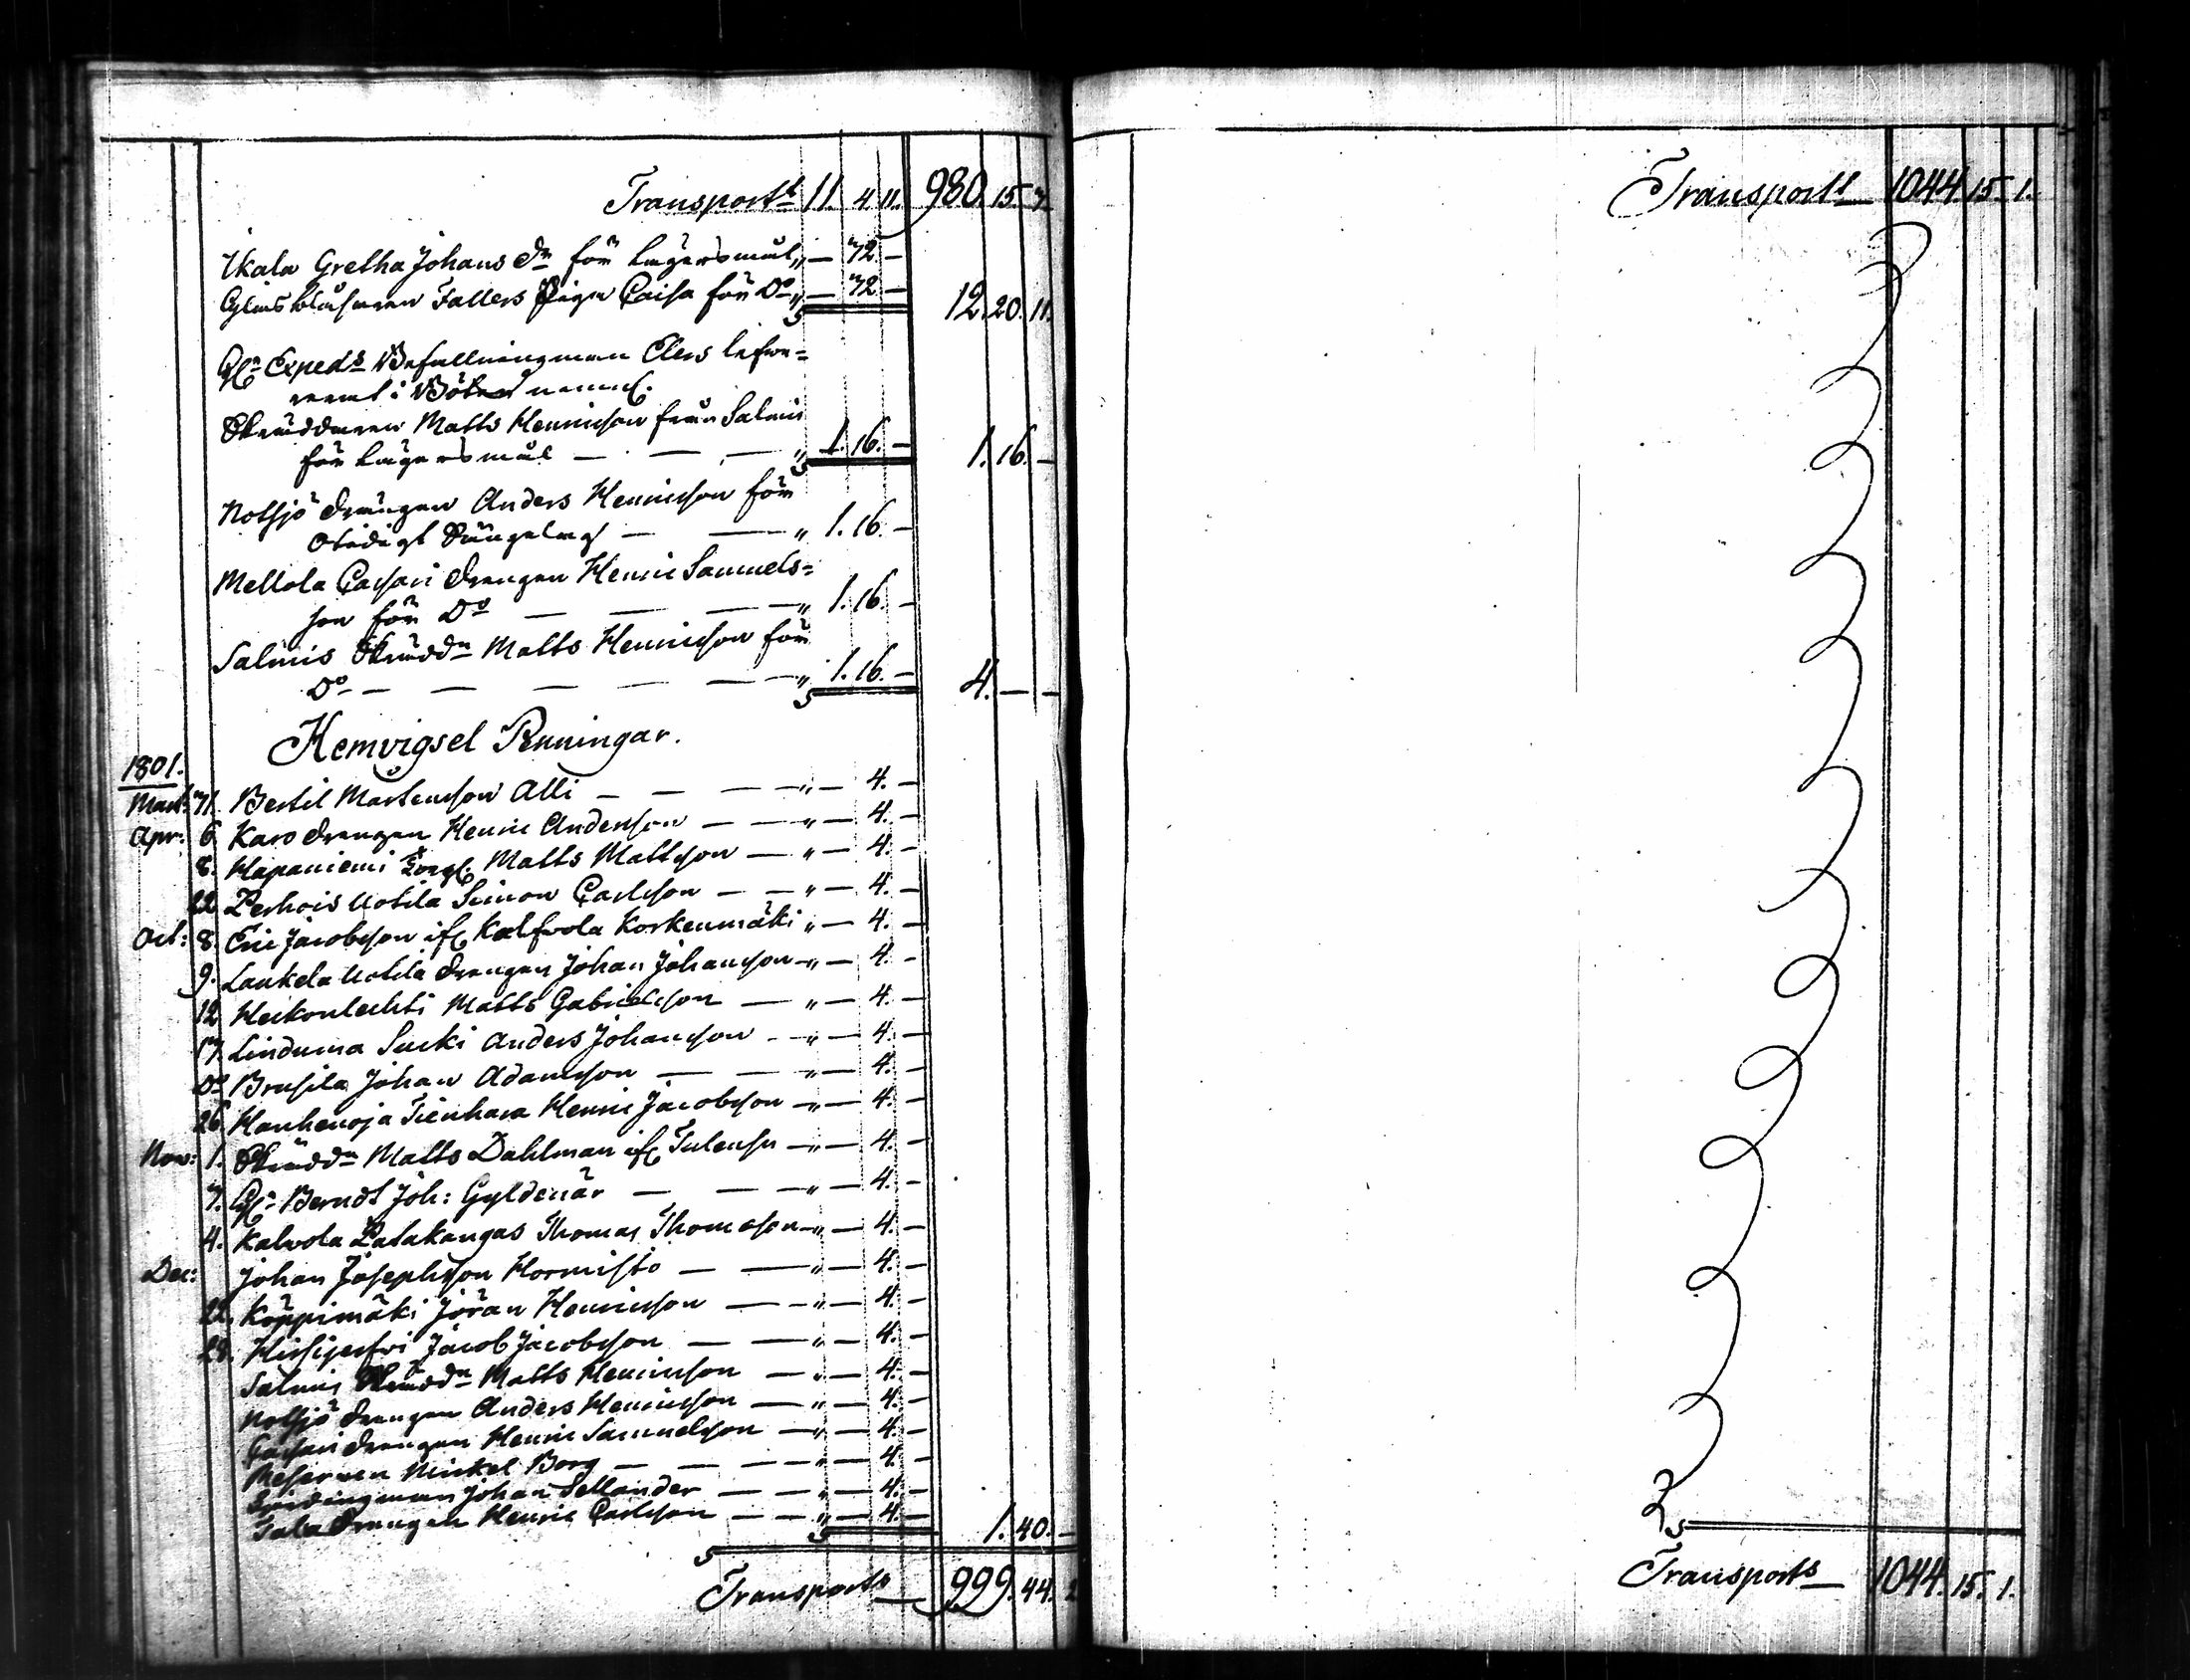 Transport 11. 4 11. 980. 15. 7.
Ikala Gretha Johans dr för Lägersmål „ — 72 —
Glasblåsaren Fallers Piga Caisa för Do „ — 72 — 12. 20. 11.
Hr Expeds Befallningsman Elers lefve=
rerat i Böter neml.
Skräddaren Matts Henricsson från Salmis
för Lägersmål — — — „ 1. 16. — 1. 16. —
Notsjö drängen Anders Henricsson för
Otidigt Sängelag — — „ 1. 16. —
Mellola Cassari drengen Henric Samuels=
son för Do — — — „ 1. 16. —
Salmis Skrädd. Matts Henricsson för
Do — — — — — „ 1. 16. — 4. — —
Hemvigsel Penningar.
1801.
Mart: 71. Bertil Mårtensson Alli — — — „ — 4. —
Apr: 6. Karo drengen Henric Andersson — — „ — 4. —
8. Hapaniemi Matts Mattsson — „ — 4. —
22. Perhois Uotila Simon Carlsson — — „ — 4. —
Oct: 8. Eric Jacobsson if. Kalfvola Korkenmäki „ — 4. —
9. Laukela Uotila drengen Johan Johansson — „ — 4. —
12. Heikonlechti Matts Gabrielsson — „ — 4. —
17. Linduma Sucki Anders Johansson — „ — 4. —
Do Brusila Johan Adamsson — — „ — 4. —
26. Hanhenoja Tienhara Henric Jacobsson — „ — 4. —
Nov: 1. Skrädd. Matts Dahlman if. — „ — 4. —
7. Hr Berndt Joh: Gyldenär — — — „ — 4. —
4. Kalvola Patakangas Thomas Thomasson — „ — 4. —
Dec: Johan Josephsson Hormisto — — „ — 4. —
22. Köppimäki Jöran Henricsson — — „ — 4. —
28. Hirsijerfvi Jacob Jacobsson — — „ — 4. —
Salmis Skrädd. Matts Henricsson — „ — 4. —
Notsjö drengen Anders Henricsson — „ — 4. —
Cassari drengen Henric Samuelsson — „ — 4. —
Mickel Borg — — — „ — 4. —
Johan Sellander — — „ — 4. —
Tala drengen Henric Carlsson — — „ — 4. — 1. 40. —
Transport 999. 44.
Transport 1044. 15. 1.
Transport 1044. 15. 1.